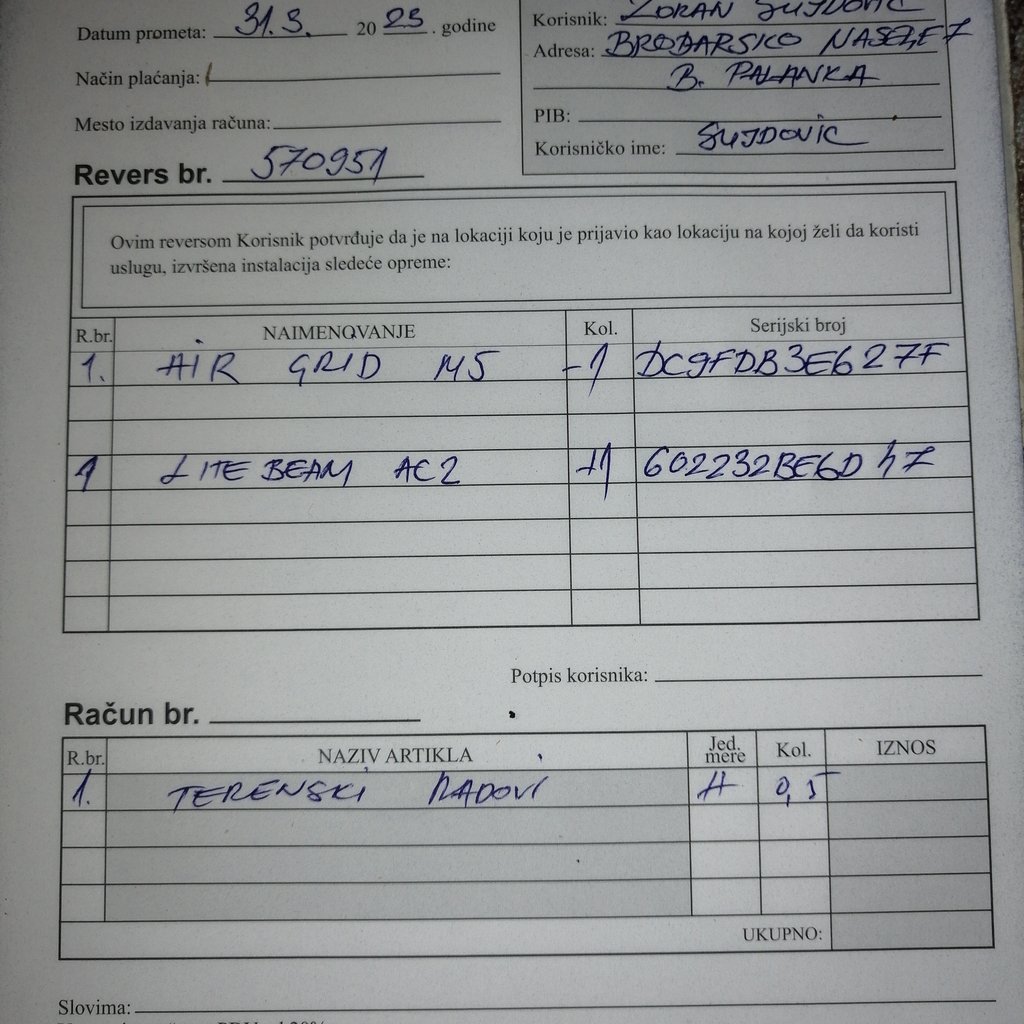 Datum prometa: 31.3. 20 23 . godine
Način plaćanja:
Mesto izdavanja računa:
Korisnik: ZORAN SUJDOVIĆ
Adresa: BRODARSKO NASELJE 7
B. PALANKA
PIB:
Korisničko ime: SUJDOVIC
Revers br. 570951
Ovim reversom Korisnik potvrđuje da je na lokaciji koju je prijavio kao lokaciju na kojoj želi da koristi
uslugu, izvršena instalacija sledeće opreme:
R.br. NAIMENOVANJE Kol. Serijski broj
1. AIR GRID M5 -1 DC9FDB3E627F
1 LITE BEAM AC2 +1 602232BE6D47
Potpis korisnika:
Račun br.
R.br. NAZIV ARTIKLA Jed. mere Kol. IZNOS
1. TERENSKI RADOVI H 0,5
UKUPNO:
Slovima: